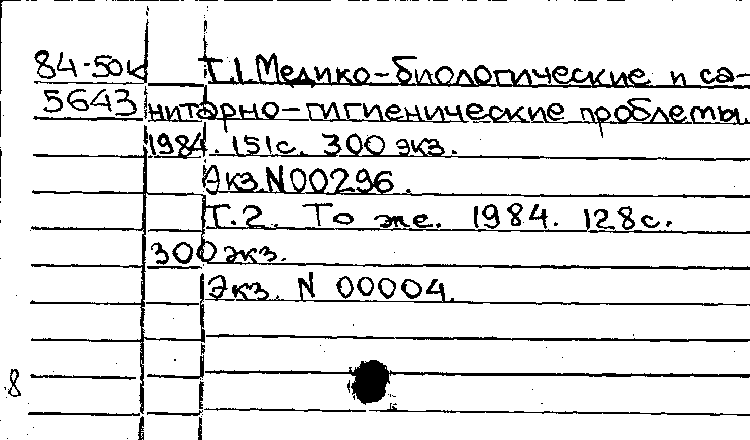 84-50к Т.1. Медико-биологические и са-
5643 нитарно-гигиенические проблемы.
1984. 151с. 300 экз.
Экз. N 00296.
Т.2. То же. 1984. 128с.
300 экз.
Экз. N 00004.
8